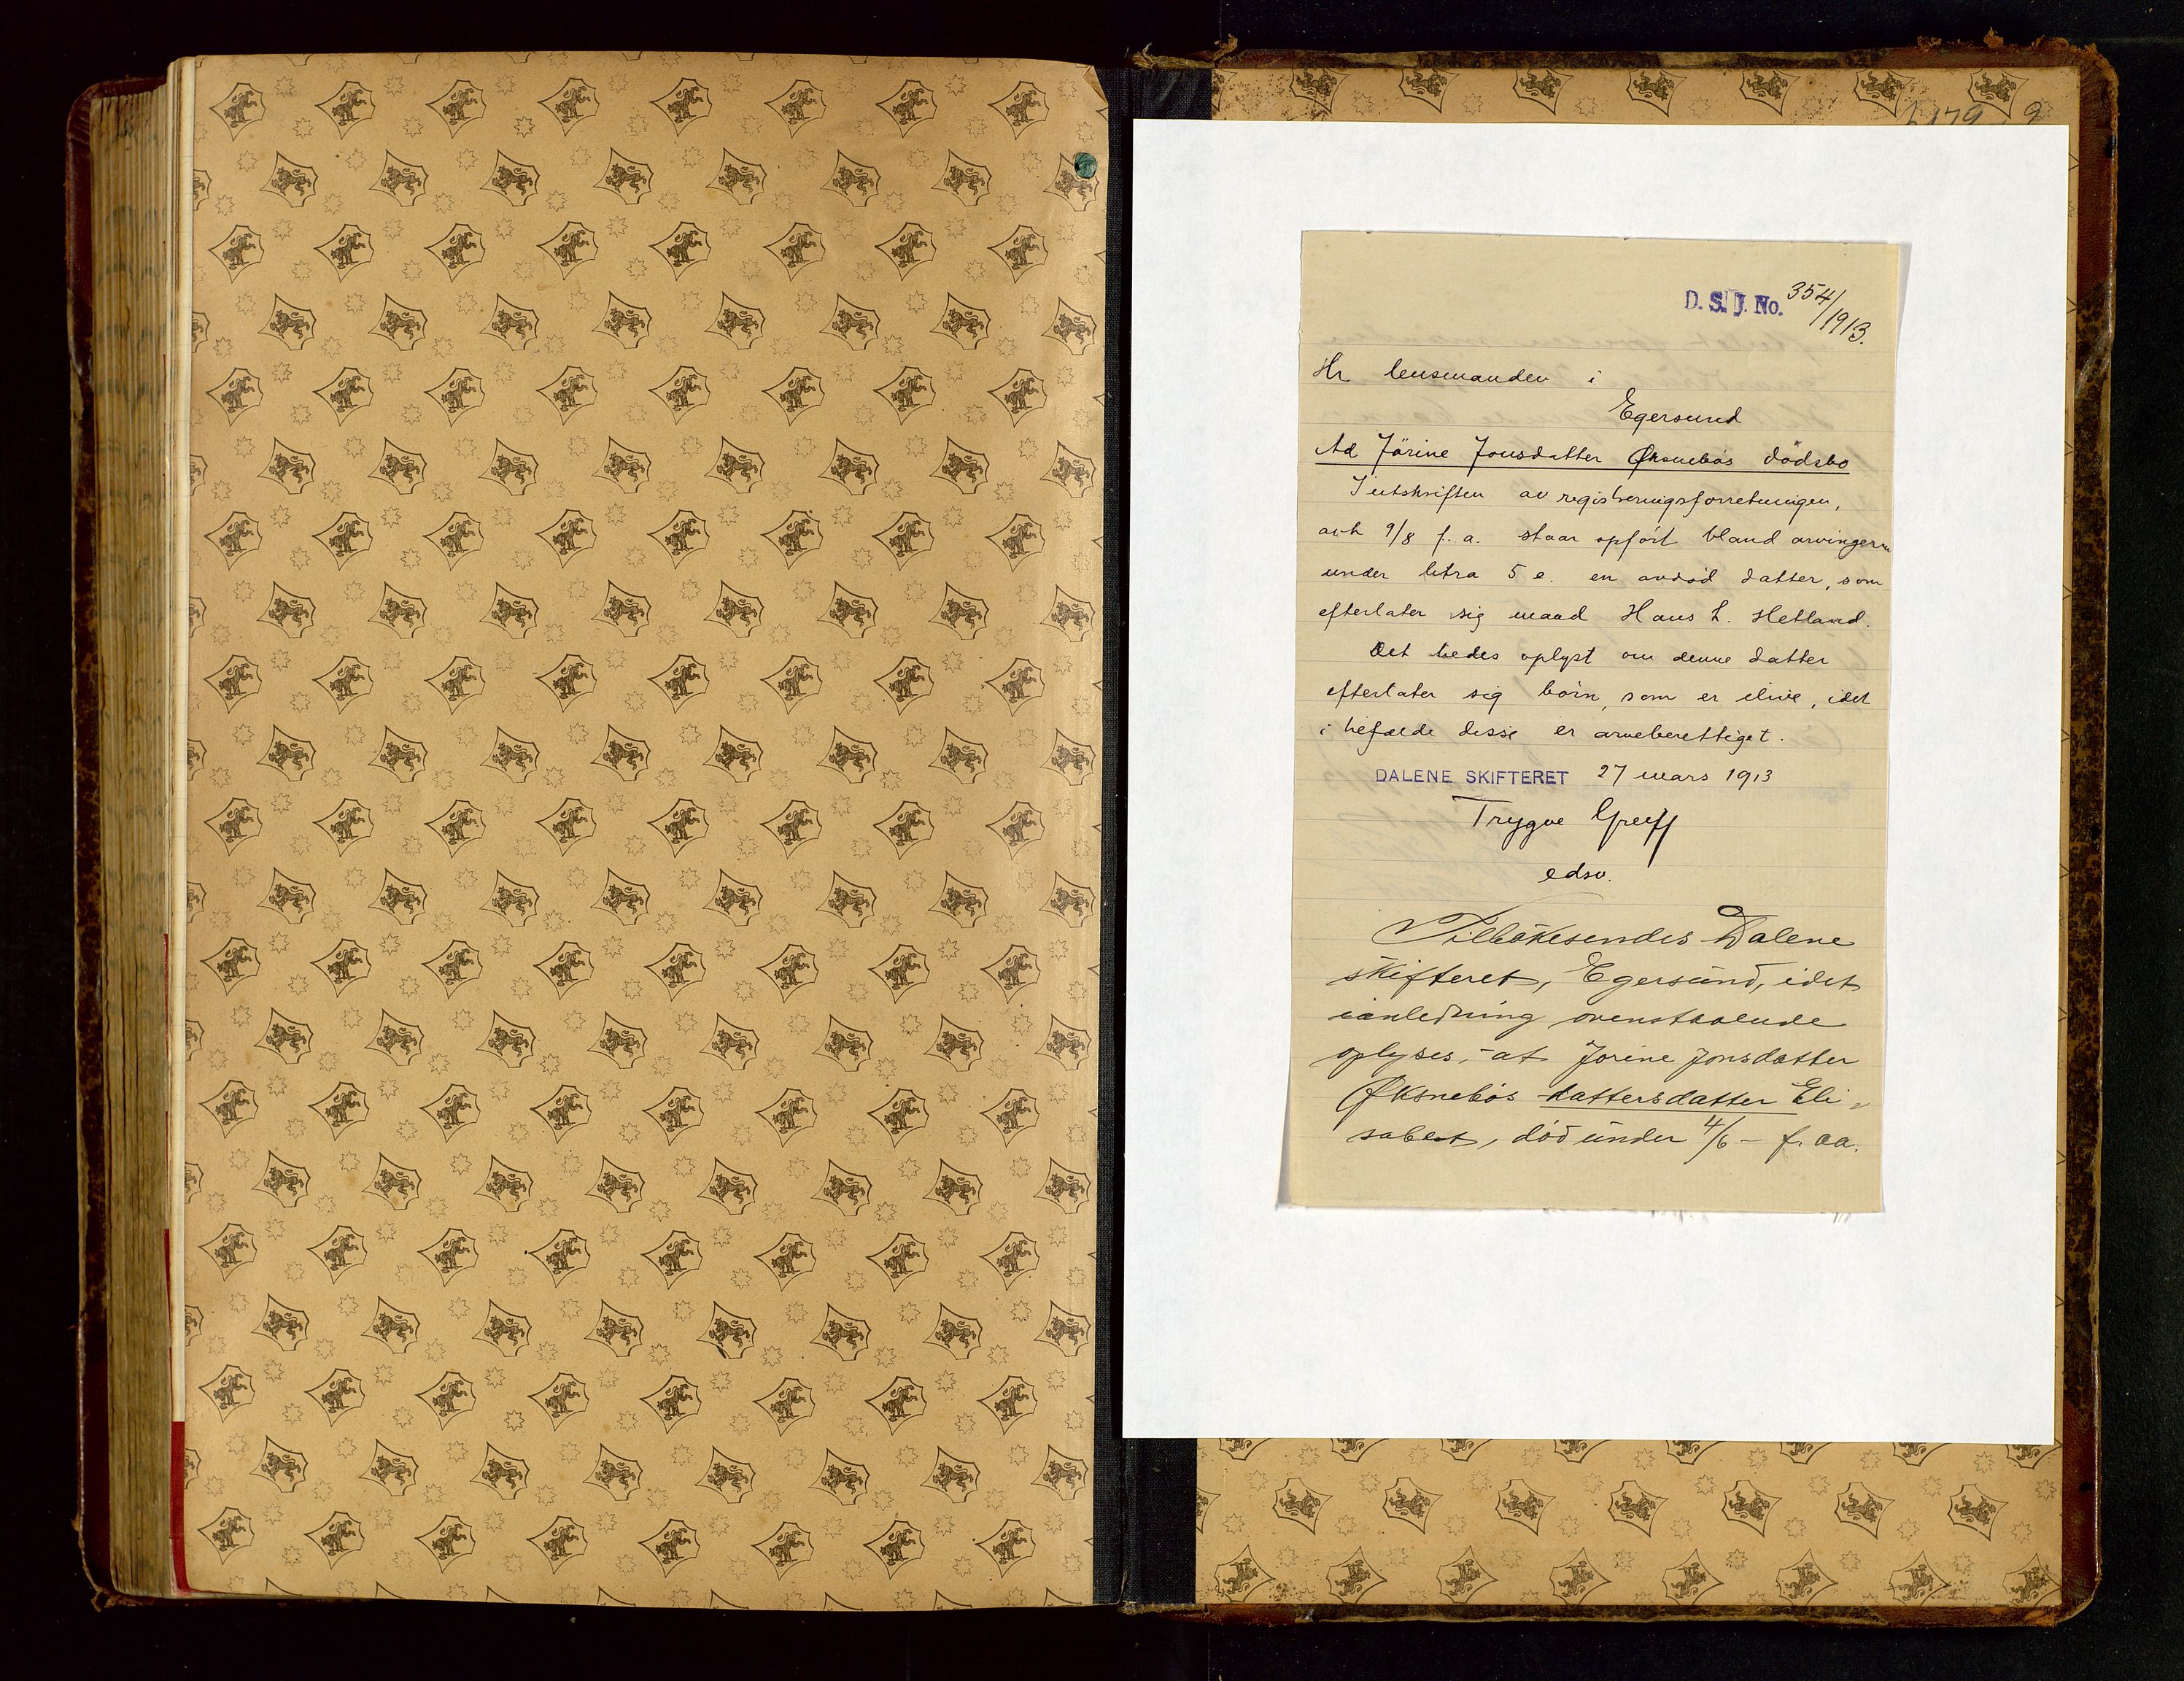 D. S. J. No. 354/1913.
Hr lensmanden i
Egersund
Ad Jörine Jonsdatter Øksnebös dödsbo
I utskriften av registreringsforretningen,
avh 9/8 f. a. staar opfört bland arvingerne
under litra 5 e. en avdød datter, som
efterlater sig mand Hans L. Hetland.
Det bedes oplyst om denne datter
efterlater sig børn, som er ilive, idet
i befælde disse er arveberettiget.
DALENE SKIFTERET 27 mars 1913
Trygve Greiff
edsv.
Tilbakesendes Dalene
skifteret, Egersund, idet
ianledning ovenstaaende
oplyses, at Jorine Jonsdatter
Øksnebös dattersdatter Eli-
sabet, död under 4/6 - f. aa.